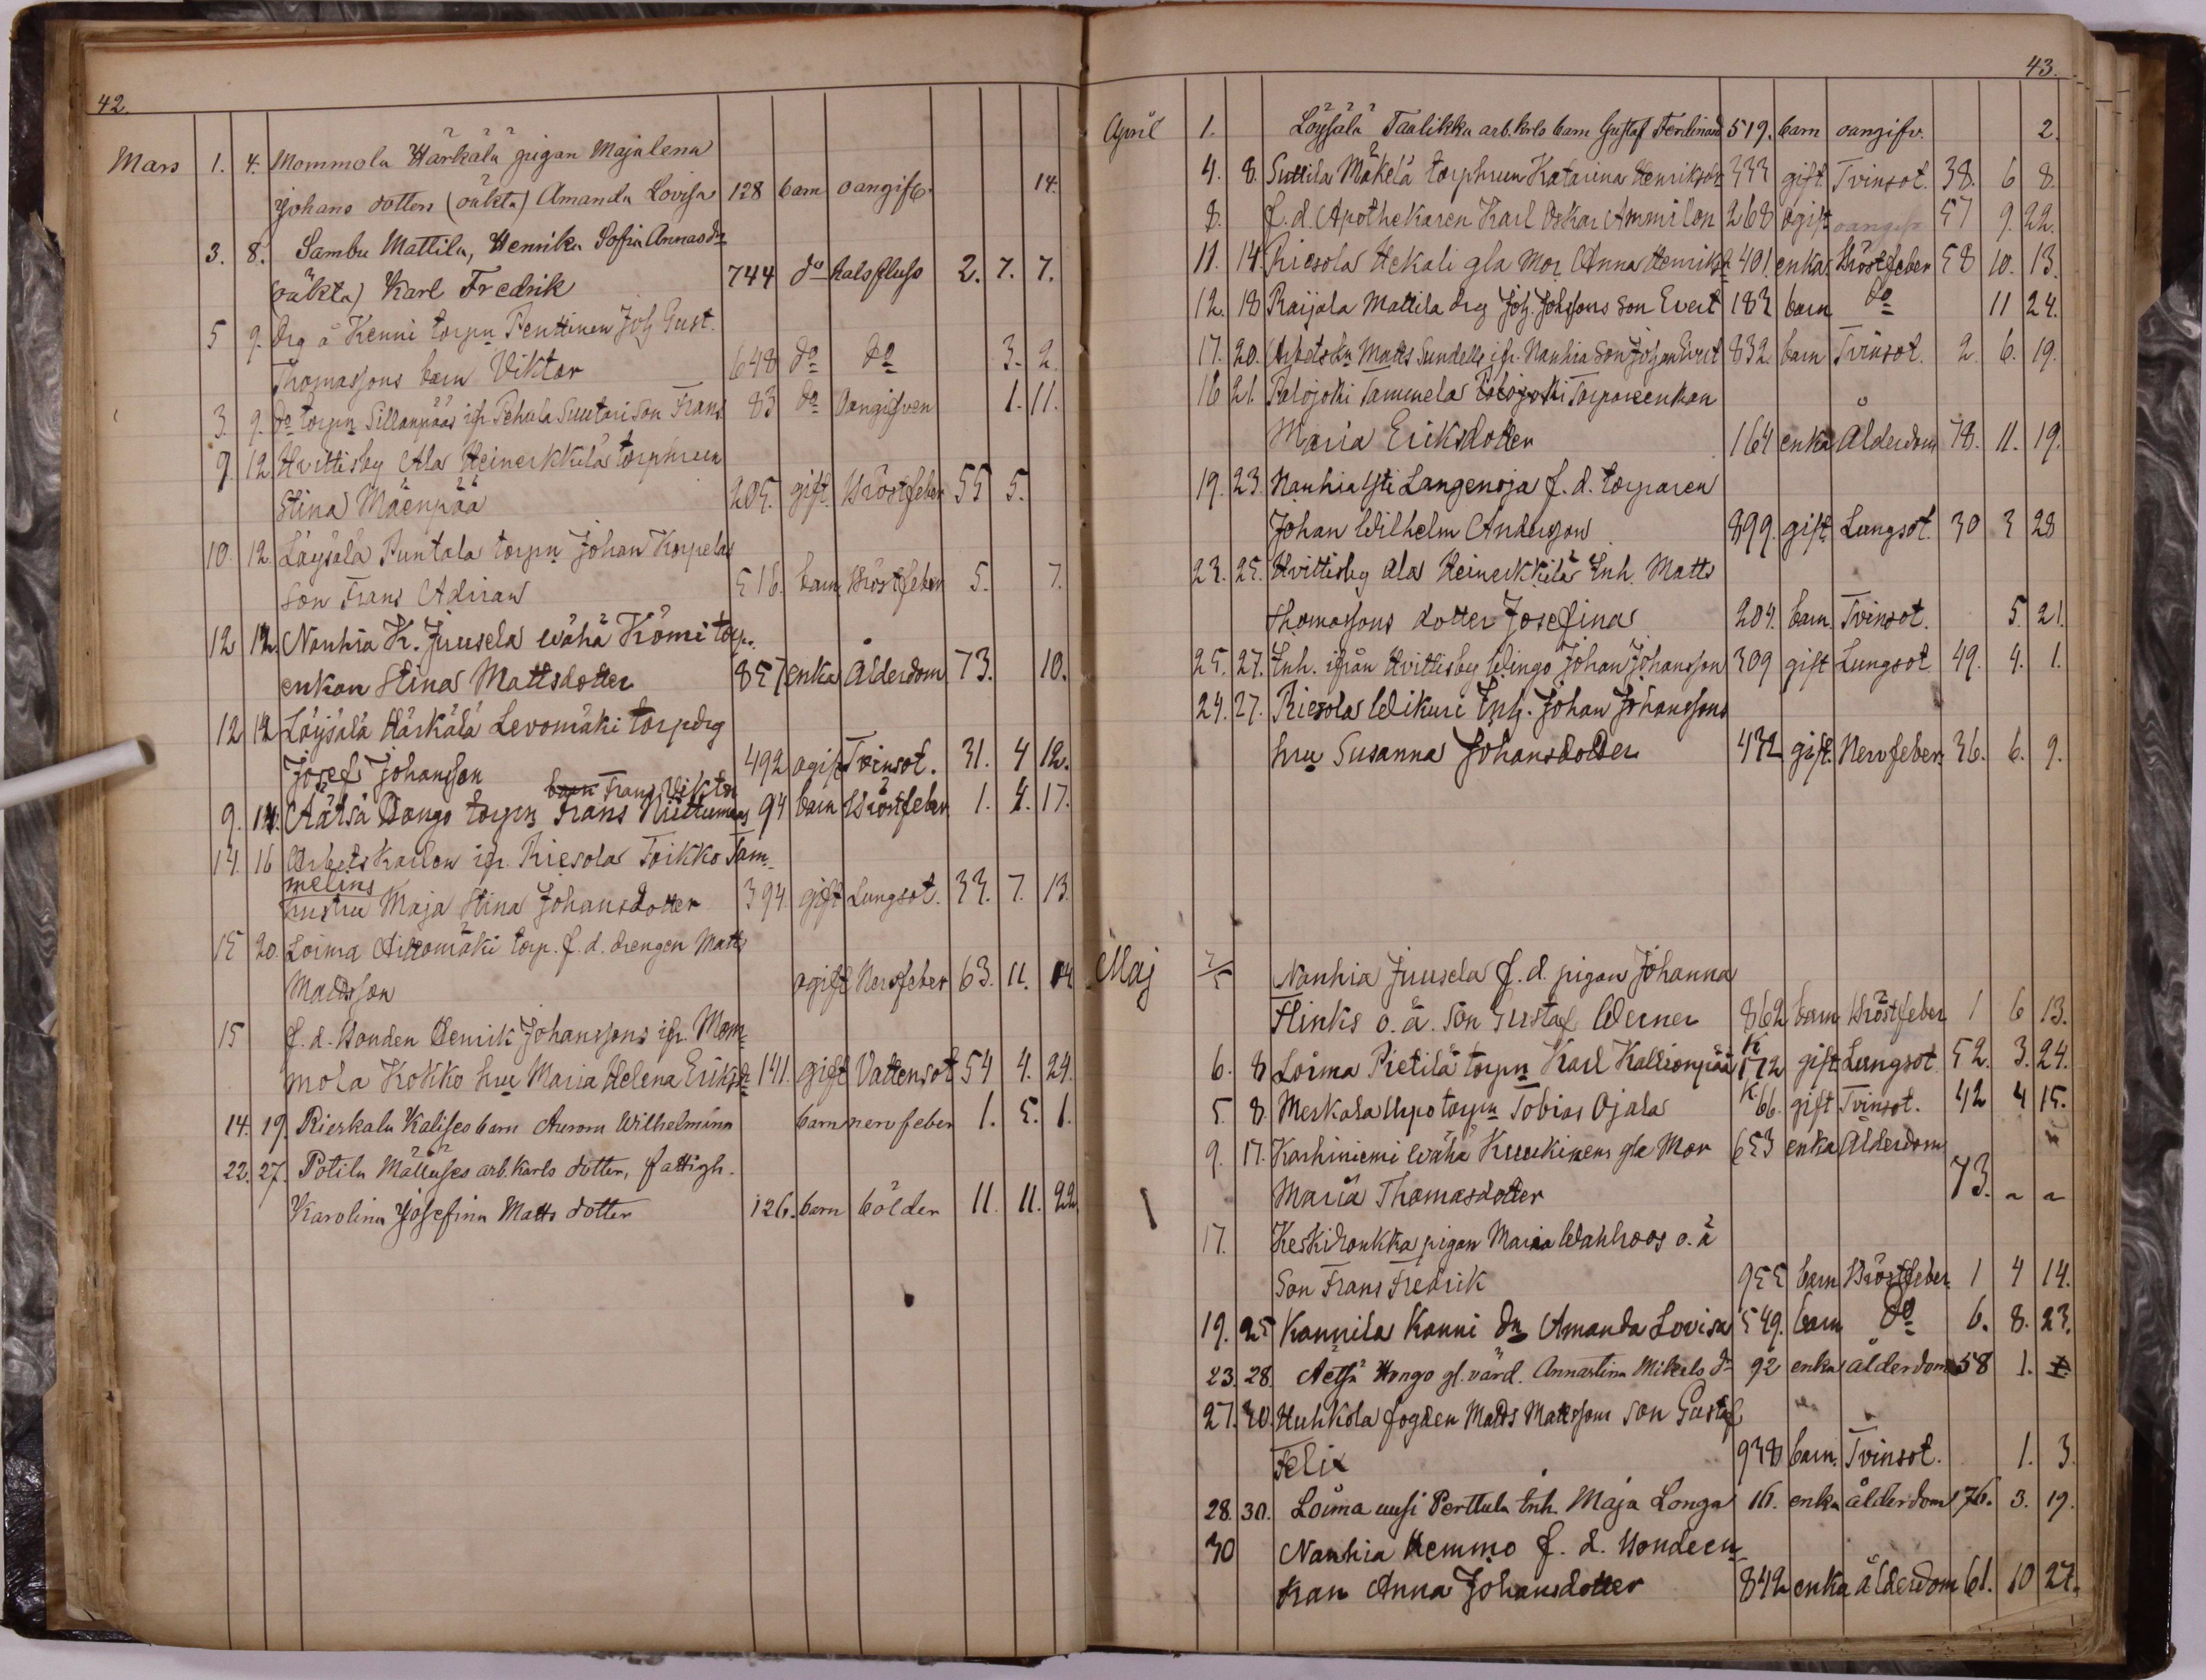 42.
Mars 1. 4. Mommola Härkälä pigan Majalena
Johans dotters (oäkta) Amanda Lovisa 128 barn oangifv. 14.
3. 8. Sambu Mattila, Henrika Sofia Annas dr
(oäkta) Karl Fredrik 744 do halsfluss 2. 7. 7.
5 9. Drg å Kenni torpn Penttinen Joh. Gust.
Thomassons barn Viktor 648 do do 3. 2.
3. 9. do torpn Sillanpääs ifr. Pehula Suutari Son Frans 83 do Oangifven 1. 11.
9. 12 Hvittisby Ala Heinerkkilä torphrun
Stina Mäenpää 205. gift. Bröstfeber 55 5.
10. 12. Löysälä Puntala torpn Johan Korpelas
Son Frans Adrian 516. barn Bröstfeber 5. 7.
12 12. Nanhia K. Juusela Wähä Kömi torp.
enkan Stina Mattsdotter 857 enka Ålderdom 73. 10.
12 12 Löysälä Härkälä Levomäki torpdrg
Josef Johansson 492 ogift Tvinsot. 31. 4 12.
barn Frans Viktor
9. 14. Äätsä Hongo torpn Frans Niittumaas 94 barn Bröstfeber 1. 4. 17.
14. 16 Arbets Karlen ifr. Riesola Toikko Tam-
melins
hustru Maja Stina Johansdotter 394. gift Lungsot. 33. 7. 13.
15 20. Loima Aittomäki torp. f. d. drengen Matts
Mattsson ogift Nervfeber 63. 11. 14
15 f. d. Bonden Henrik Johanssons ifr. Mom-
mola Kokko hru Maria Helena Eriksdr 141. gift Vattensot 54 4. 24.
14. 19. Rieskala Kalises barn Aurora Wilhelmina barn nervfeber 1. 5. 1.
22. 27. Potila Mälluses arb. karls dotter, fattigh.
Karolina Josefina Matts dotter 126. barn bölder 11. 11. 22.
43.
April 1. Löysälä Taalikka arb. krls barn Gustaf Ferdinand 519. barn oangifv. 2.
4. 8. Suttila Mäkelä torphrun Katarina Henriksdr 333 gift. Tvinsot. 38. 6 8.
8. f. d. Apothekaren Karl Oskar Ammilon 268 ogift oangifv 57 9. 22.
11. 14. Riesola Hekali gla Mor Anna Henriksdr 401 enka Bröstfeber 58 10. 13.
12. 18 Raijala Mattila drg Joh. Johssons son Evert 183 barn do 11 24.
17. 20. Arbetskn Matts Sundells ifr. Nanhia Son Johan Evert 832. barn Tvinsot. 2. 6. 19.
16 21. Palojoki Tammela Palojoki Torpareenkan
Maria Eriksdotter 164 enka Ålderdom 78. 11. 19.
19. 23. Nanhia Yli Langenoja f. d. torparen
Johan Wilhelm Andersson 899. gift Lungsot. 30 3 28
23. 25. Hvittisby Ala Heinerkkilä Inh. Matts
Thomassons dotter Josefina 204. barn. Tvinsot. 5. 21.
25. 27. Inh. ifrån Hvittisby Wingo Johan Johansson 309 gift Lungsot 49. 4. 1.
24. 27. Riesola Wikuri Inh. Johan Johanssons
hru Susanna Johansdotter 432 gift. Nervfeber 36. 6. 9.
Maj 2/5 Nanhia Juusela f. d. pigan Johanna
Flinks o. ä. Son Gustaf Werner 862 barn Bröstfeber 1 6 13.
6. 8 Loima Pietilä torpn Karl Kallionpää K 172 gift Lungsot 52. 3. 24.
5. 8. Meskala Uspo torpn Tobias Ojala K. 66. gift Tvinsot. 42 4 15.
9. 17. Karhiniemi Wähä Kuukinens gla Mor 653 enka Ålderdom
Maria Thomasdotter 73. - -
17. Keskihonkka pigan Maria Wahlroos o. ä
Son Frans Fredrik 955 barn Bröstfeber 1 4 14.
19. 25 Kannila Kanni dr Amanda Lovisa 549. barn do 6. 8. 23.
23. 28. Aetsä Hongo gl. värd. Annastina Mikels dr 92 enka ålderdom 58 1.
27. 30. Huhkola fogden Matts Mattssons son Gustaf
Felix 938 barn. Tvinsot. 1. 3.
28. 30. Loima uusi Perttula Inh. Maja Longa 16. enka ålderdom 76. 3. 19.
30 Nanhia Hemmo f. d. Bondeen-
kan Anna Johansdotter 842 enka ålderdom 61. 10 27.